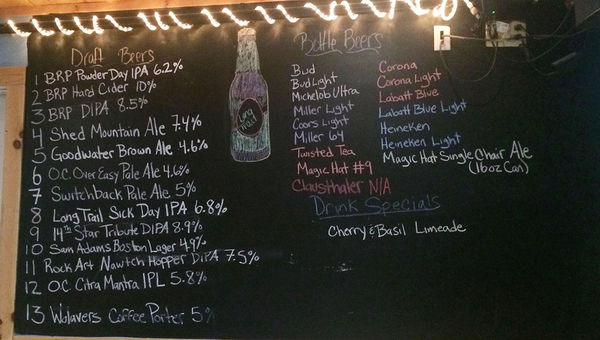 Draft Beers
1 BRP Powder Day IPA 6.2%
2 BRP Hard Cider 10%
3 BRP DIPA 8.5%
4 Shed Mountain Ale 7.4%
5 Goodwater Brown Ale 4.6%
6 O.C. Over Easy Pale Ale 4.6%
7 Switchback Pale Ale 5%
8 Long Trail Sick Day IPA 6.8%
9 14th Star Tribute DIPA 8.9%
10 Sam Adams Boston Lager 4.9%
11 Rock Art Nawtch Hopper DIPA 7.5%
12 O.C. Citra Mantra IPL 5.8%
13 Wolavers Coffee Porter 5%
Long Trail
Bottle Beers
Bud
Bud Light
Michelob Ultra
Miller Light
Coors Light
Miller 64
Twisted Tea
Magic Hat #9
Clausthaler N/A
Corona
Corona Light
Labatt Blue
Labatt Blue Light
Heineken
Heineken Light
Magic Hat Single Chair Ale
(16oz Can)
Drink Specials
Cherry & Basil Limeade